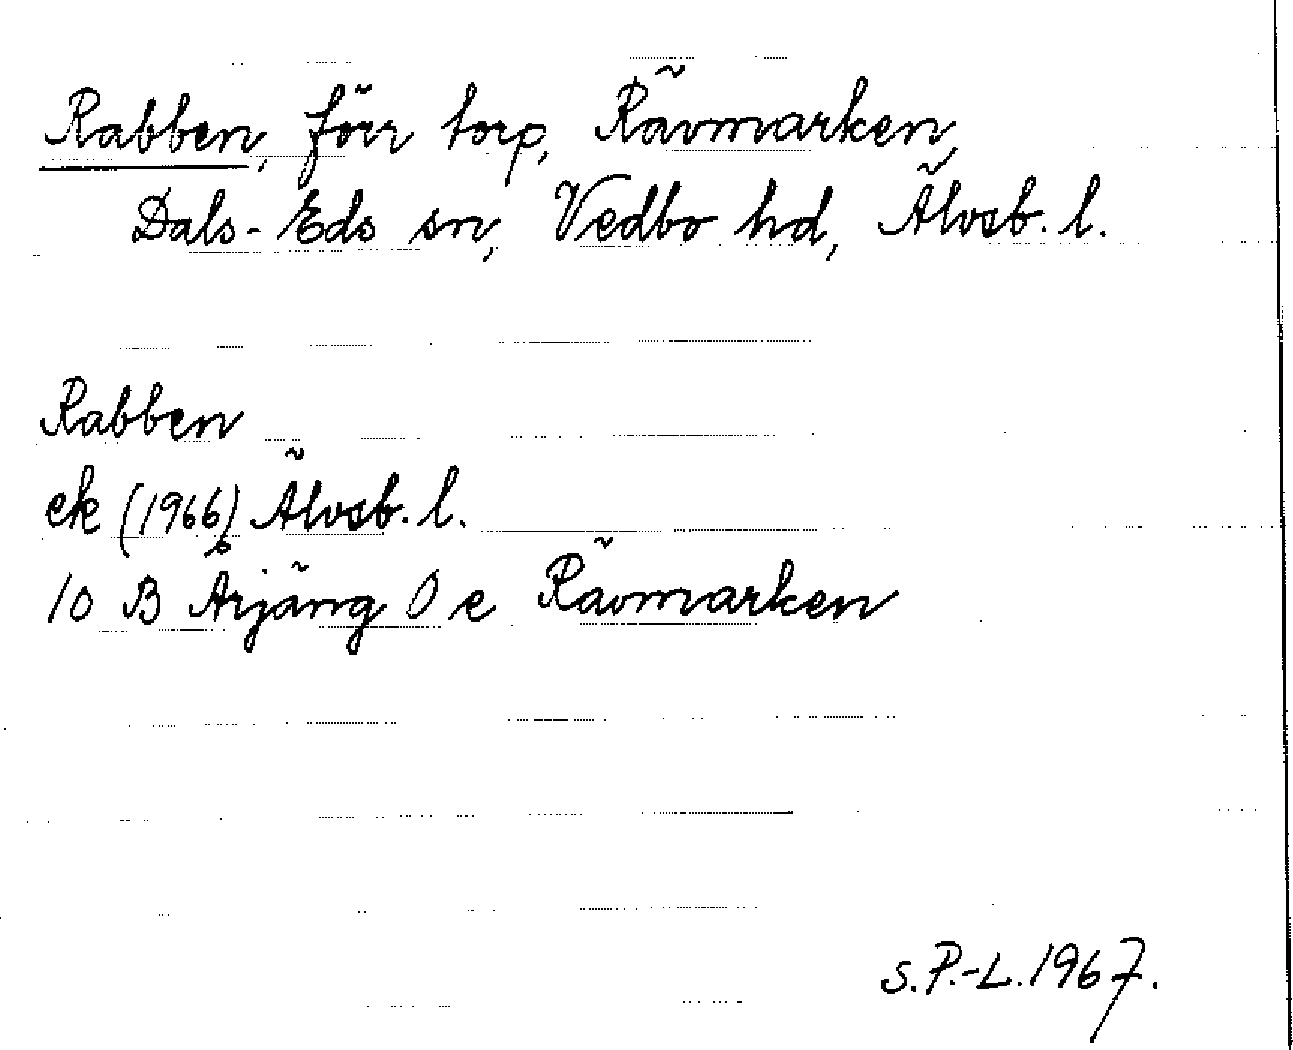 Rabben, förr torp, Rävmarken,
Dals-Eds sn, Vedbo hd, Älvsb. l.
Rabben
ek (1966) Älvsb. l.
10 B Årjäng 0 e Rävmarken
S.P.-L. 1967.